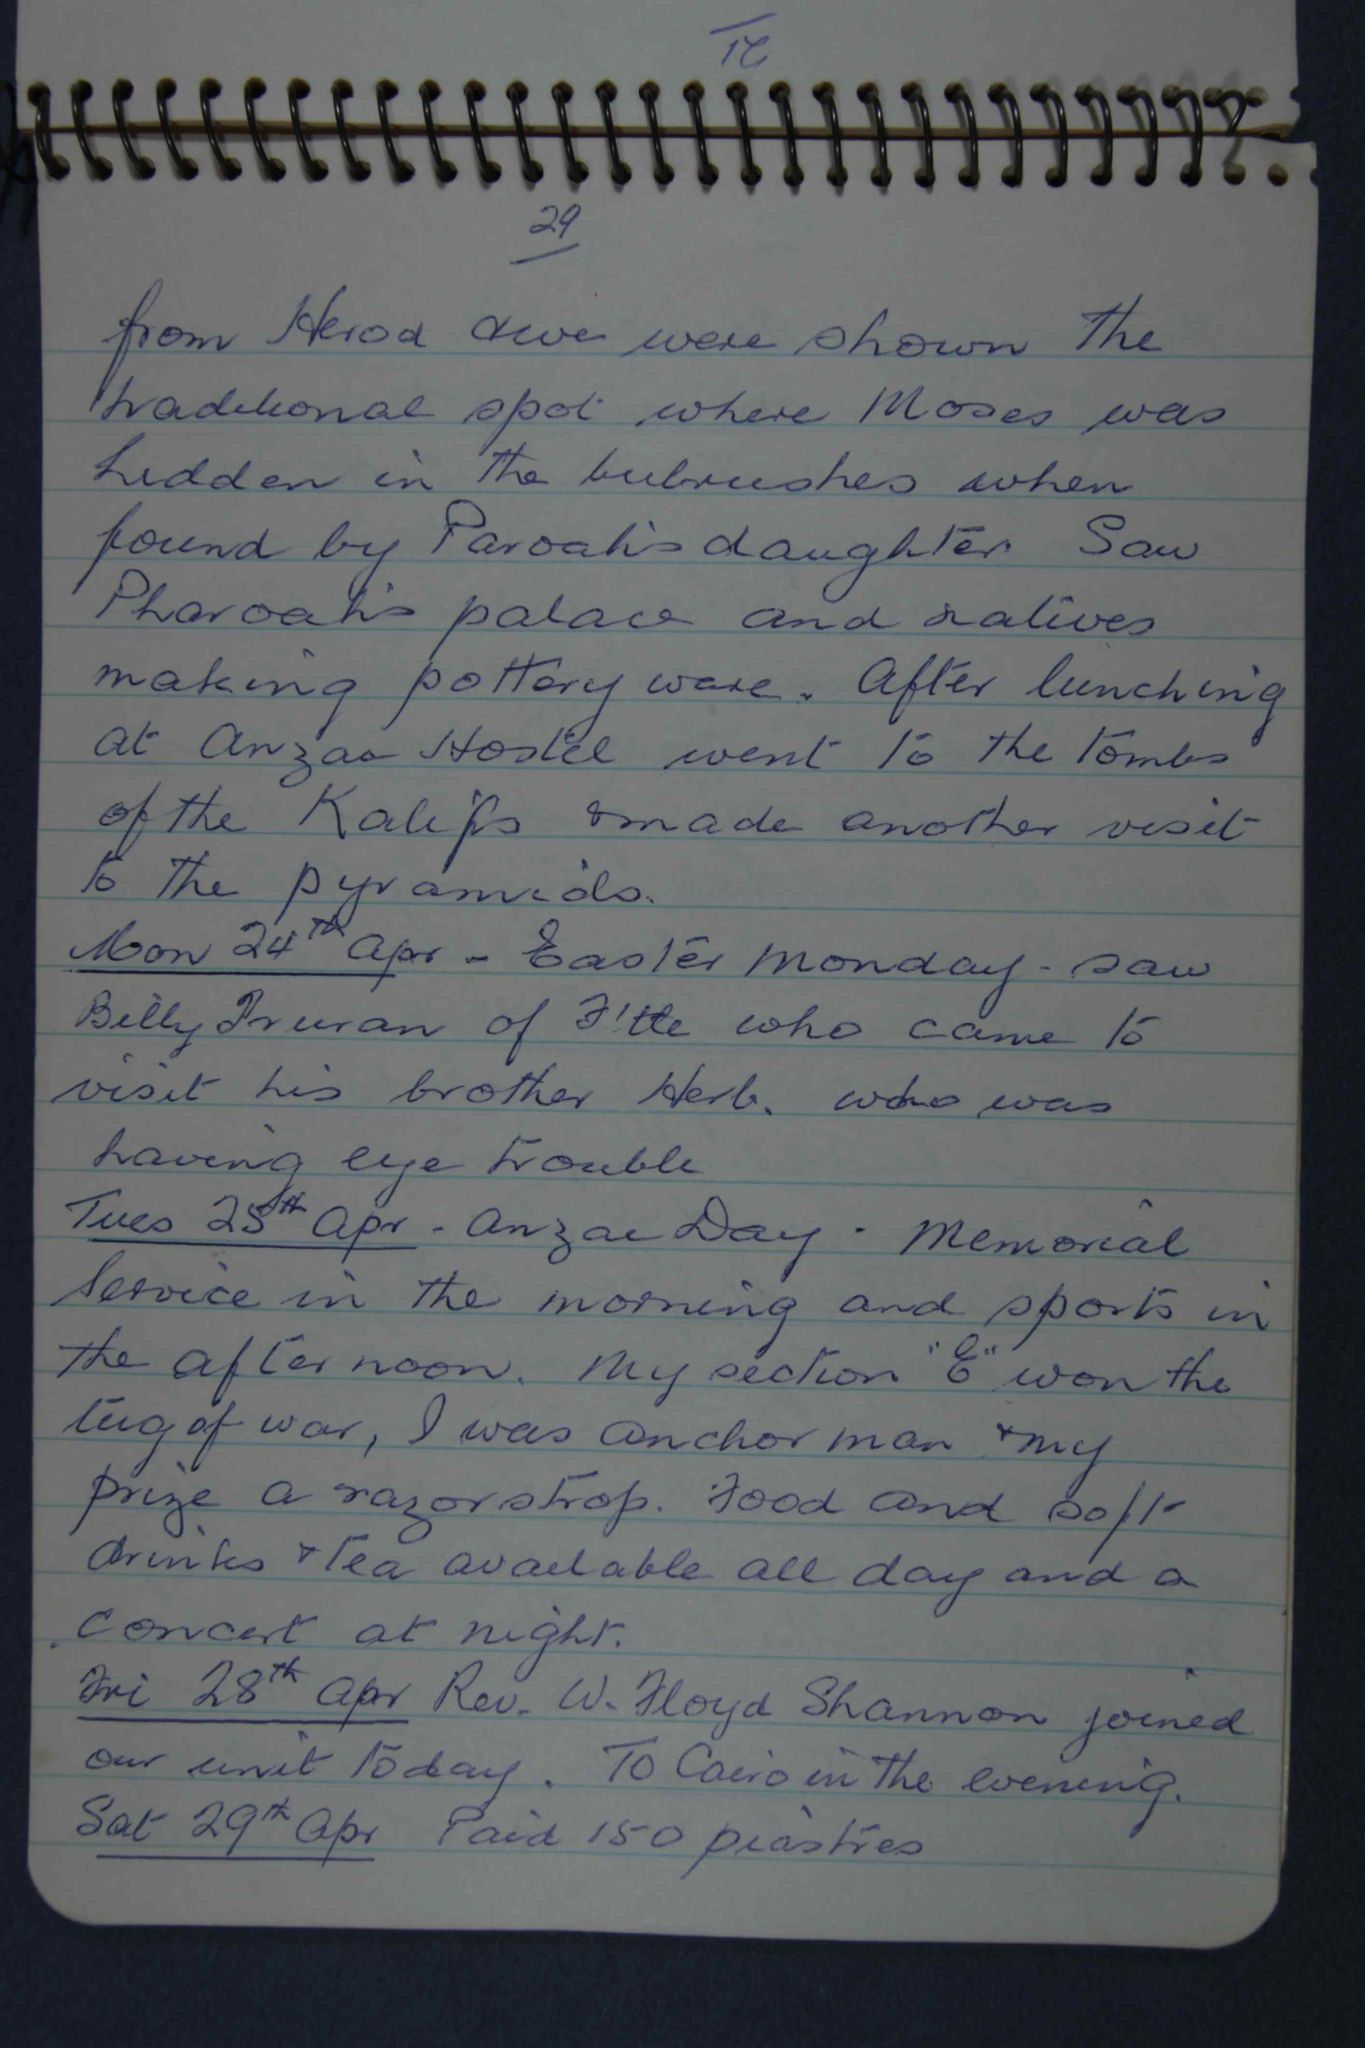 29
from Herod & we were shown the
traditional spot where Moses was
hidden in the bulrushes when
found by Paroah's daughter. Saw
Pharoah's palace and natives
making pottery ware. After lunching
at Anzac Hostel went to the tombs
of the Kalifs & made another visit
to the pyramids.
Mon 24th Apr - Easter Monday - saw
Billy of F'tle who came to
visit his brother Herb. who was
having eye trouble
Tues 25th Apr - Anzac Day - Memorial
Service in the morning and sports in
the afternoon. My section "E" won the
tug of war, I was anchor man & my
prize a razor strop. Food and soft
drinks & tea available all day and a
concert at night.
Fri 28th Apr Rev. W. Floyd Shannon joined
our unit today. To Cairo in the evening.
Sat 29th Apr Paid 150 piastres